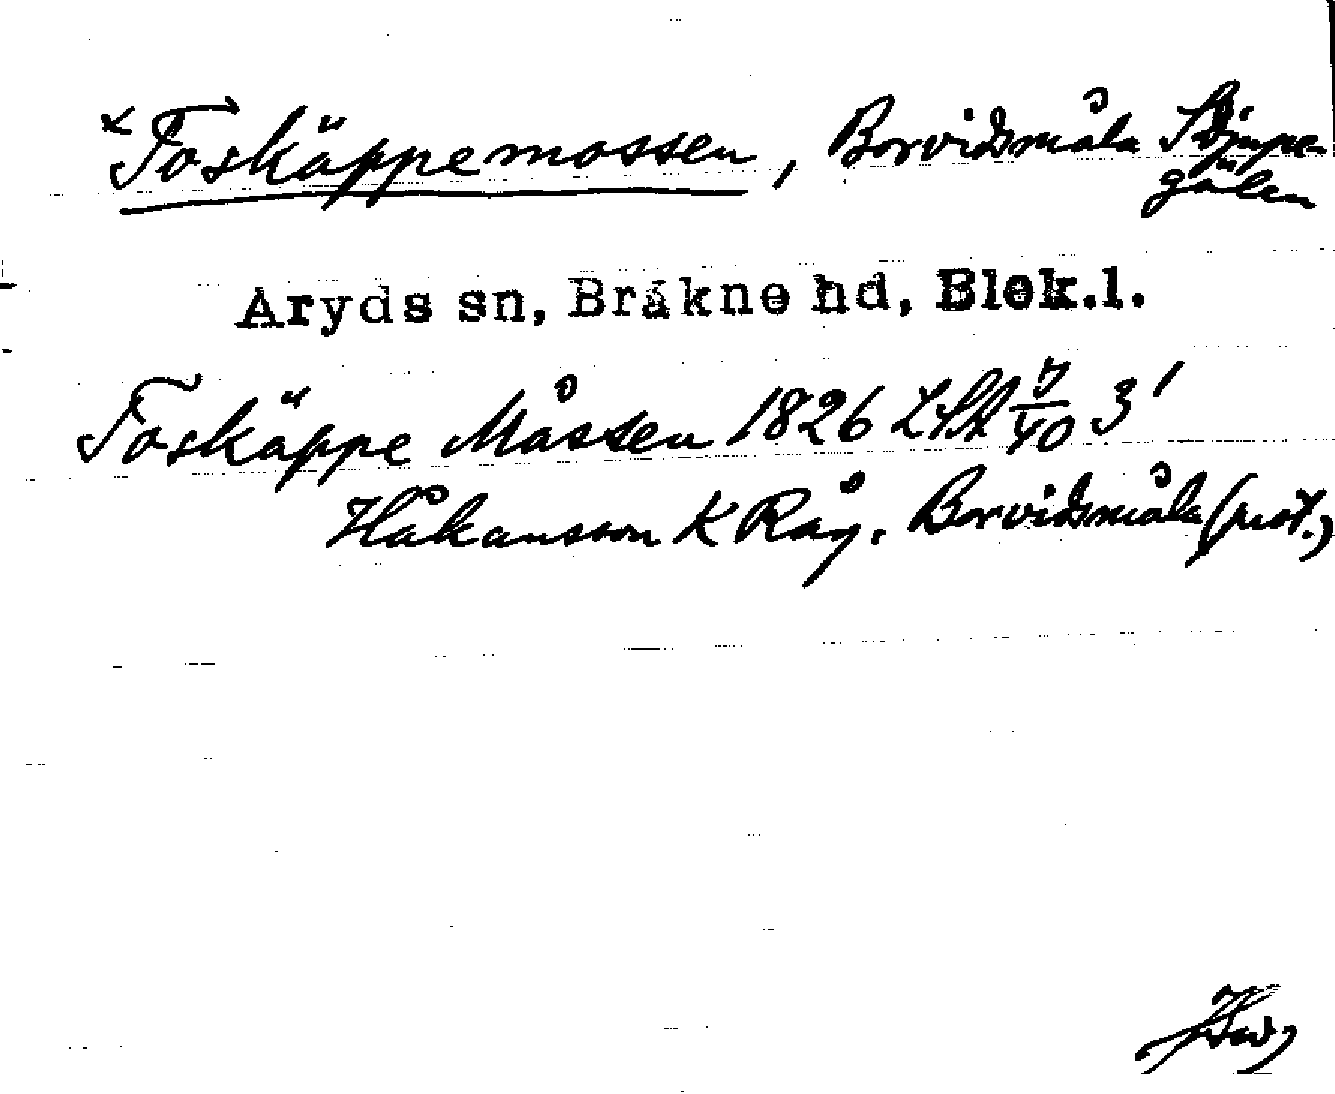 × Toskäppemossen, Borvidsmåla
gölen
Aryds sn, Bräkne hd, Blek.l.
Toskäppe Måssen 1826 LSA 7/40 3'
Håkansson K Råg. Borvidsmåla (prot.)